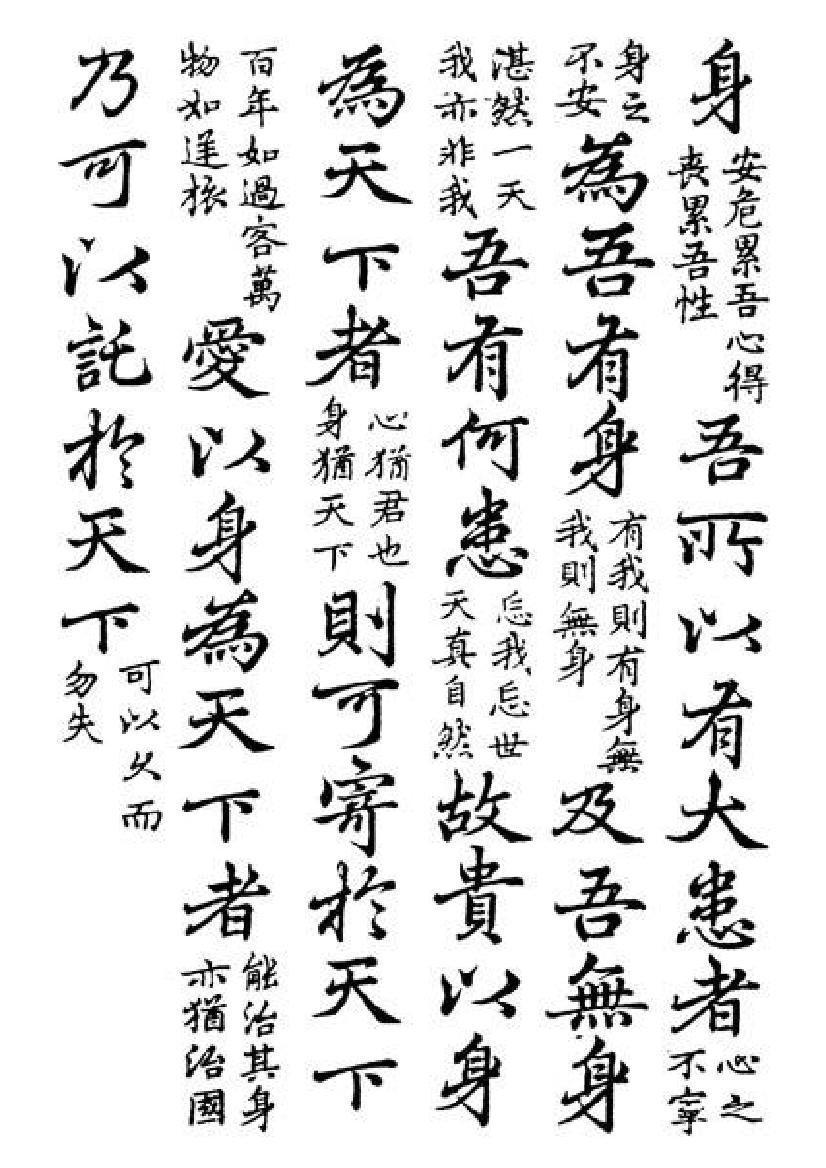 身安危累吾心得喪累吾性吾所以有大患者心之不寧
身之不安為吾有身有我則有身無我則無身及吾無身
湛然一天我亦非我吾有何患忘我忘世天真自然故貴以身
為天下者心猶君也身猶天下則可寄於天下
百年如過客萬物如逆旅愛以身為天下者能治其身亦猶治國
乃可以託於天下可以久而勿失